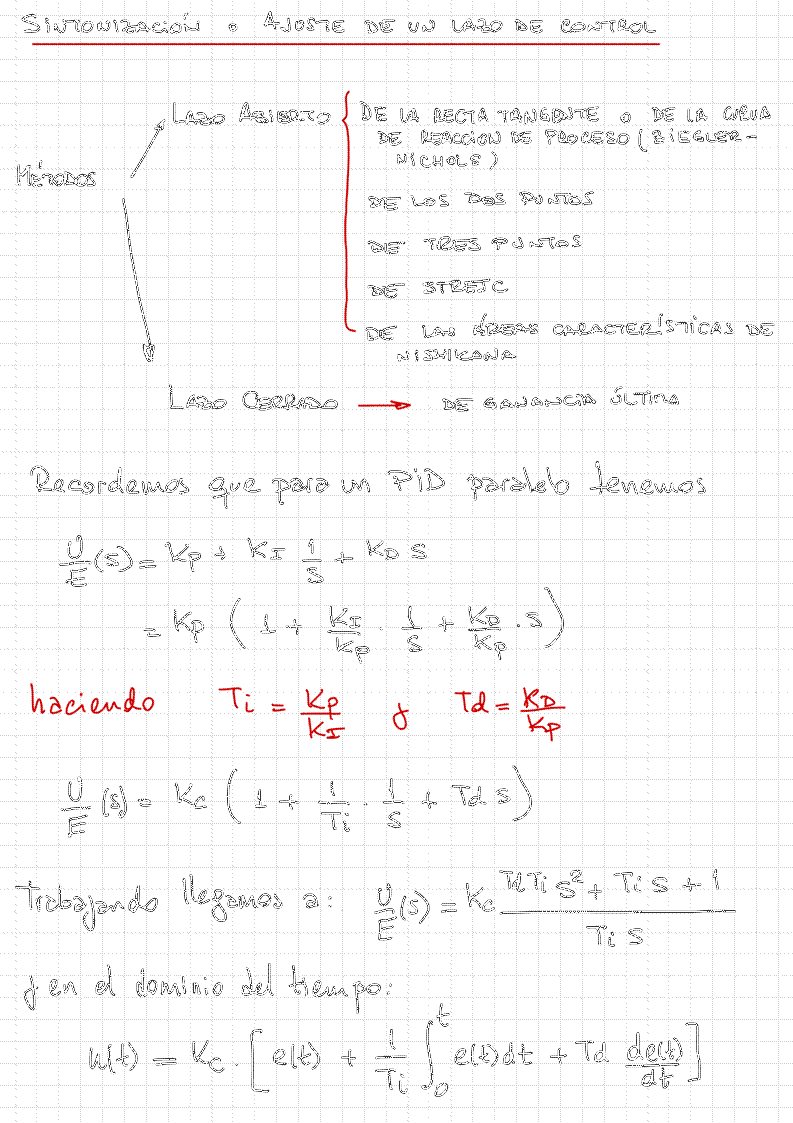 SINTONIZACIÓN o AJUSTE DE UN LAZO DE CONTROL
MÉTODOS
LAZO ABIERTO
DE LA RECTA TANGENTE o DE LA CURVA
DE REACCIÓN DE PROCESO (ZIEGLER-
NICHOLS)
DE LOS DOS PUNTOS
DE TRES PUNTOS
DE STREJC
DE LAS ÁREAS CARACTERÍSTICAS DE
NISHIKAWA
LAZO CERRADO → DE GANANCIA ÚLTIMA
Recordemos que para un PiD paralelo tenemos
U/E (s) = Kp + KI 1/s + KD s
= Kp ( 1 + KI/Kp · 1/s + KD/Kp · s )
haciendo Ti = Kp/KI y Td = KD/Kp
U/E (s) = Kc ( 1 + 1/Ti · 1/s + Td s )
Trabajando llegamos a: U/E (s) = Kc (Td Ti s² + Ti s + 1)/(Ti s)
y en el dominio del tiempo:
u(t) = Kc · [ e(t) + 1/Ti ∫₀ᵗ e(t)dt + Td de(t)/dt ]